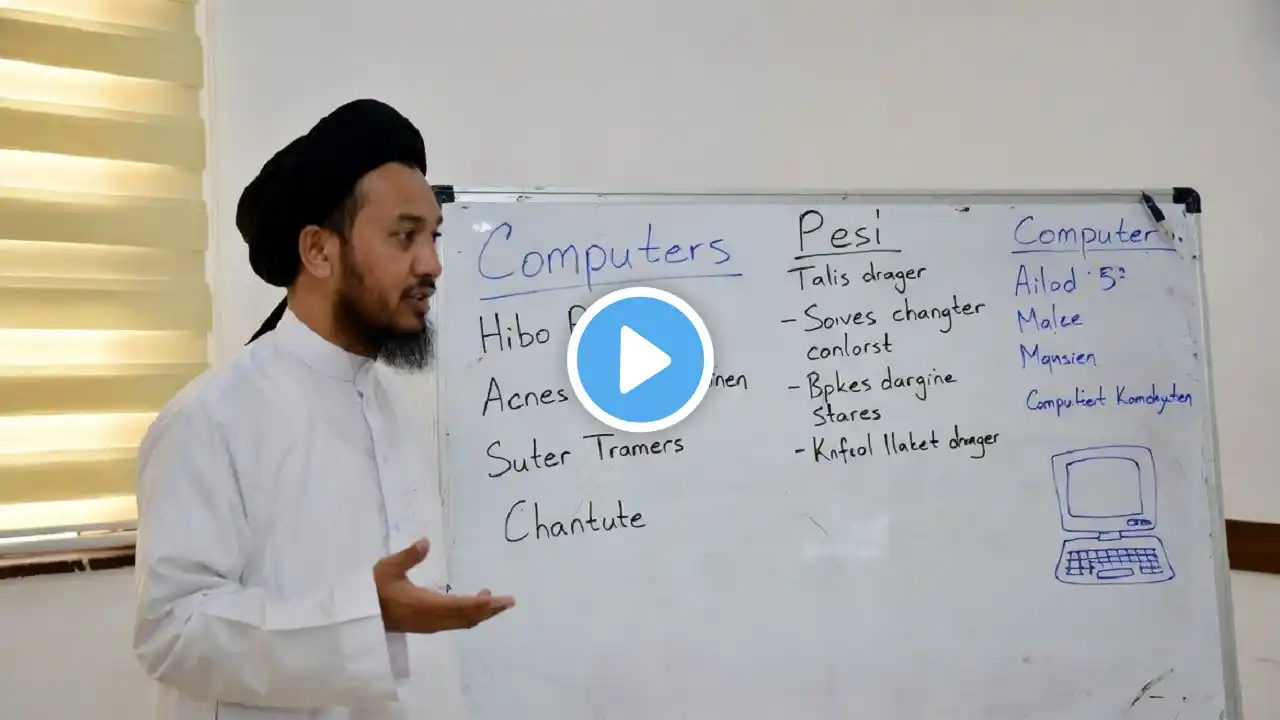 Computers
Hibo
Acnes
Suter Tramers
Chantute
Pesi
Talis drager
- Soives changter
conlorst
- Bpkes dargine
Stares
- Knfrol llaket drager
Computer
Ailod 5:
Malee
Mqnsien